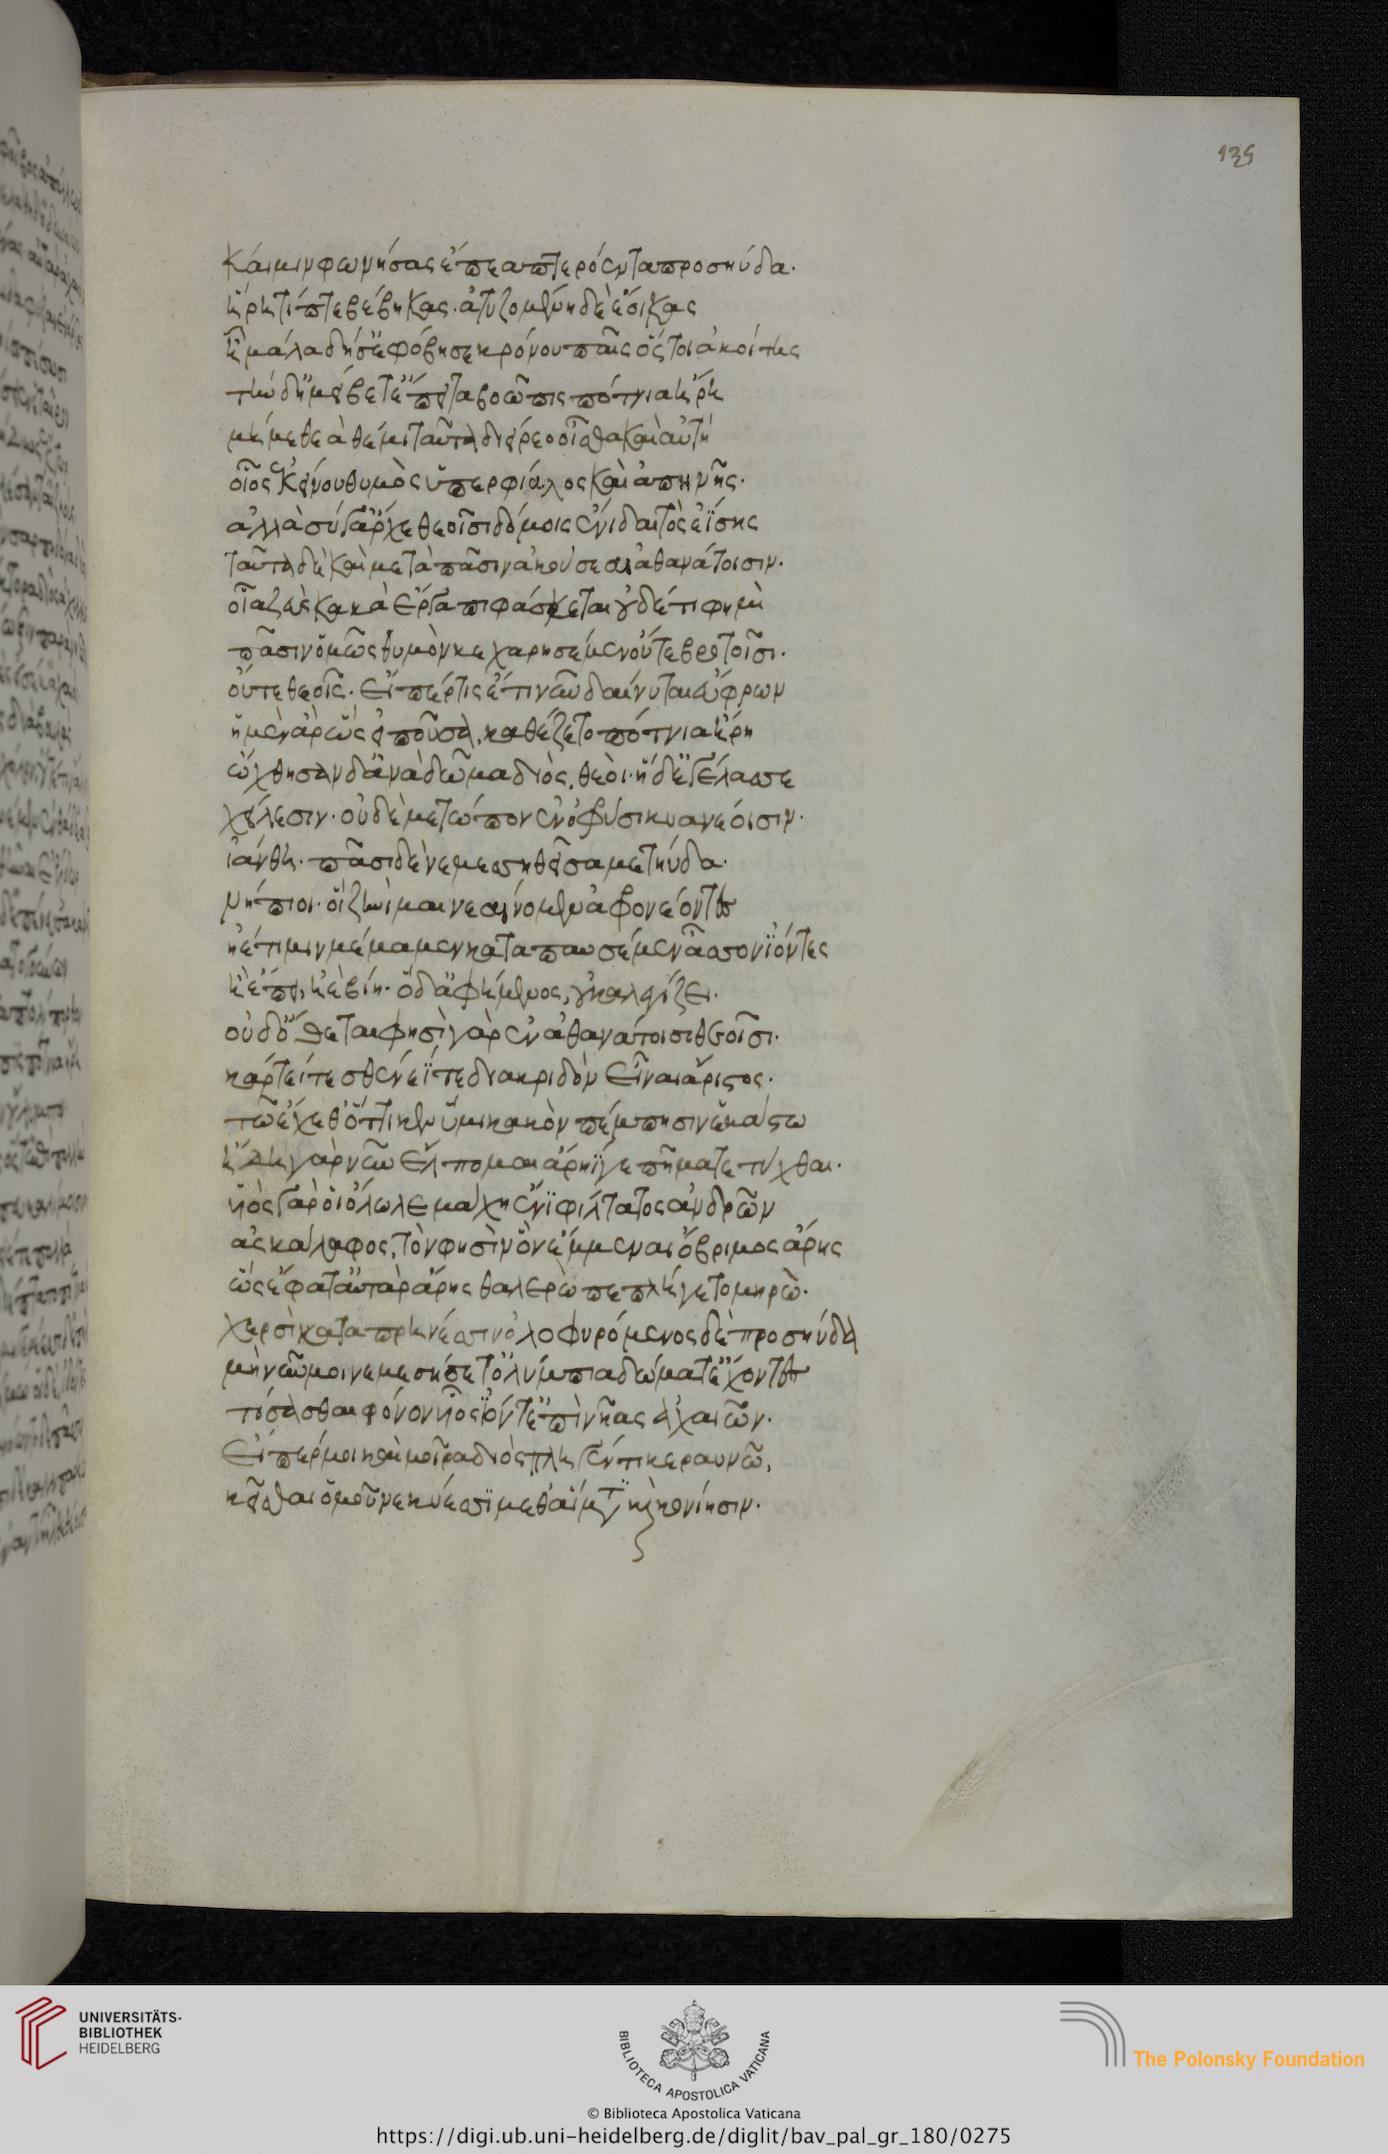 135
καί μιν φωνήσας ἔπεα πτερόεντα προσηύδα.
ἥρη τίπτε βέβηκας. ἀτυζομένη δὲ ἔοικας
ἦ μάλα δή σ' ἐφόβησε κρόνου παῖς ὅς τοι ἀκοίτης
τὴν δ' ἠμείβετ' ἔπειτα βοῶπις πότνια ἥρη
μή με θεὰ θέμι ταῦτα διείρεο οἶσθα καὶ αὐτή
οἷος ἐκείνου θυμὸς ὑπερφίαλος καὶ ἀπηνής.
ἀλλὰ σύ γ' ἄρχε θεοῖσι δόμοις ἔνι δαιτὸς ἐΐσης
ταῦτα δὲ καὶ μετὰ πᾶσιν ἀκούσεαι ἀθανάτοισιν.
οἷα ζεὺς κακὰ ἔργα πιφάσκεται οὐδέ τι φημὶ
πᾶσιν ὁμῶς θυμὸν κεχαρησέμεν οὔτε βροτοῖσι.
οὔτε θεοῖς. εἴπερ τις ἔτι νῦν δαίνυται εὔφρων
ἡ μὲν ἄρ' ὣς εἰποῦσα, καθέζετο πότνια ἥρη
ὤχθησαν δ' ἀνὰ δῶμα διὸς, θεοὶ. ἡ δ' ἐγέλασσε
χείλεσιν. οὐδὲ μέτωπον ἐν ὀφρύσι κυανέοισιν.
ἰάνθη. πᾶσι δὲ νεμεσσηθεῖσα μετηύδα.
νήπιοι. οἳ ζηνὶ μενεαίνομεν ἀφρονέοντες
ἢ ἔτι μιν μέμαμεν καταπαυσέμεν ἆσσον ἰόντες
ἢ ἔπει, ἠὲ βίη. ὁ δ' ἀφήμενος, οὐκ ἀλεγίζει.
οὐδ' ὄθεται φησὶ γὰρ ἐν ἀθανάτοισι θεοῖσι.
κάρτεΐ τε σθένεΐ τε διακριδὸν εἶναι ἄριστος.
τῶ ἔχεθ' ὅττι κεν ὔμμι κακὸν πέμπησιν ἑκάστω
ἤδη γὰρ νῦν ἔλπομαι ἄρηΐ γε πῆμα τετύχθαι.
υἱὸς γάρ οἱ ὄλωλε μάχη ἔνι φίλτατος ἀνδρῶν
ἀσκάλαφος, τὸν φησὶν ὃν ἔμμεναι ὄβριμος ἄρης
ὣς ἔφατ' αὐτὰρ ἄρης θαλερὼ πεπλήγετο μηρὼ.
χερσὶ καταπρηνέσσιν ὀλοφυρόμενος δὲ προσηύδα
μὴ νῦν μοι νεμεσήσετ' ὀλύμπια δώματ' ἔχοντες
τίσασθαι φόνον υἷος ἰόντ' ἐπὶ νῆας ἀχαιῶν.
εἴπέρ μοι καὶ μοῖρα διὸς πληγέντι κεραυνῶ,
κεῖσθαι ὁμοῦ νεκύεσσι μεθ' αἵματι καὶ κονίησιν.
UNIVERSITÄTS-
BIBLIOTHEK
HEIDELBERG
BIBLIOTECA APOSTOLICA VATICANA
The Polonsky Foundation
© Biblioteca Apostolica Vaticana
https://digi.ub.uni-heidelberg.de/diglit/bav_pal_gr_180/0275